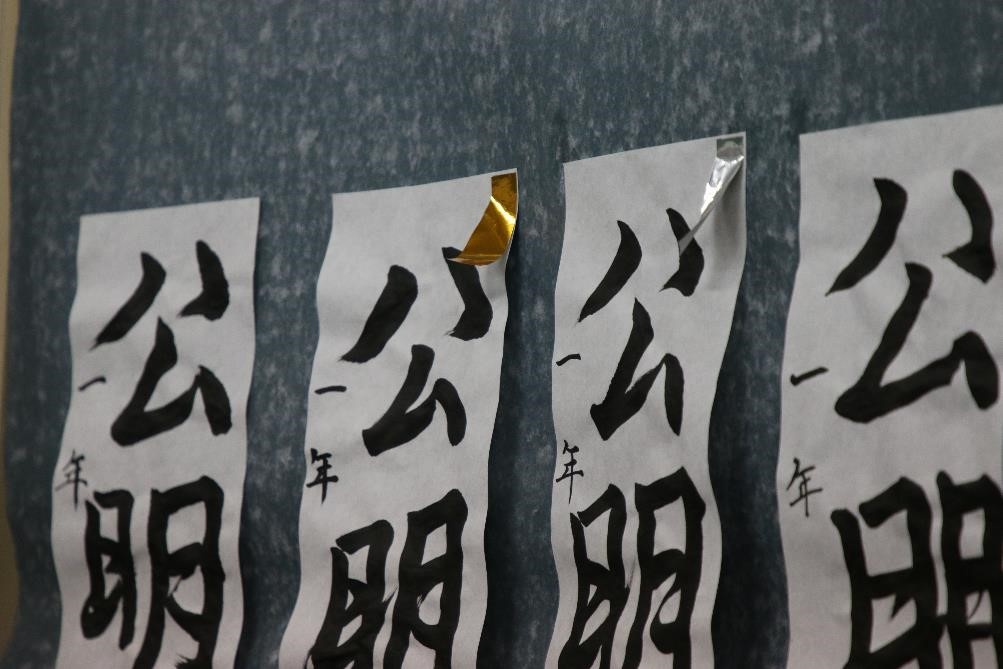 公明
一年
公明
一年
公明
一年
公明
一年